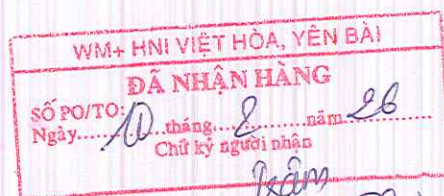 WM+ HNI VIỆT HÒA, YÊN BÀI
ĐÃ NHẬN HÀNG
SỐ PO/TO:
Ngày.....10.....tháng.....2.....năm 26
Chữ ký người nhận
Trâm